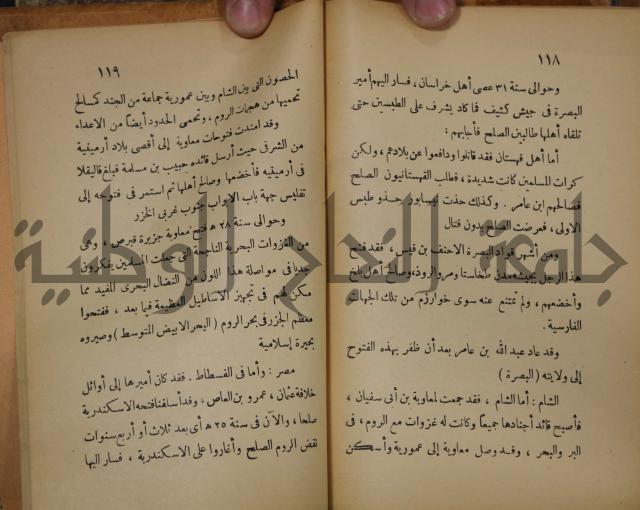 ١١٨
وحوالى سنة ٣١ عصى أهل خراسان، فسار اليهم أمير
البصرة فى جيش كثيف فما كاد يشرف على الطبسين حتى
تلقاه أهلها طالبين الصلح فأجابهم :
أما أهل قهستان فقد قاتلوا ودافعوا عن بلادهم ، ولكن
كرات المسلمين كانت شديدة ، فطلب القهستانيون الصلح
فصالحهم ابن عامر . وكذلك حذت نيسابور حذو طبس
الاولى ، فعرضت الصلح بدون قتال
ومن أشهر قواد البصرة الاحنف بن قيس ، فقد فتح
هذا الرجل بجيشه مدن طخاستا ومرو الروذ، وصالح أهل بلخ
وأخضعهم ، ولم تمتنع عنه سوى خوارزم من تلك الجهات
الفارسية .
وقد عاد عبد الله بن عامر بعد أن ظفر بهذه الفتوح
إلى ولايته ( البصرة )
الشام : أما الشام ، فقد جمعت لمعاوية بن أبى سفيان ،
فأصبح قائد أجنادها جميعاً وكانت له غزوات مع الروم ، فى
البر والبحر ، وقد وصل معاوية إلى عمورية وأسكن
١١٩
الحصون التى بين الشام وبين عمورية جماعة من الجند كمسالح
تحميها من هجمات الروم ، وتحمى الحدود أيضاً من الاعداء
وقد امتدت فتوحات معاوية إلى أقصى بلاد أرمينية
من الشرق حيث أرسل قائده حبيب بن مسلمة فبلغ قاليقلا
فى أرمينيه فأخضعها وصالح أهلها ثم استمر فى فتوحه إلى
تفليس جهة باب الابواب جنوب غربى الخزر
وحوالى سنة ٢٨ ه فتح معاوية جزيرة قبرص ، وهى
من الغزوات البحرية الناجحة التى جعلت المسلمين يفكرون
جديا فى مواصلة هذا اللون من النضال البحرى المفيد مما
مكن لهم فى تجهيز الاساطيل العظيمة فيما بعد ، ففتحوا
معظم الجزر فى بحر الروم ( البحر الابيض المتوسط ) وصيروه
بحيرة إسلامية
مصر : وأما فى الفسطاط . فقد كان أميرها إلى أوائل
خلافة عثمان ، عمرو بن العاص، وقد أسلفنا فتحه الاسكندرية
صلحا ، والآن فى سنة ٢٥ ه أى بعد ثلاث أو أربع سنوات
نقض الروم الصلح وأغاروا على الاسكندرية ، فسار اليها
جامعة النجاح الوطنية